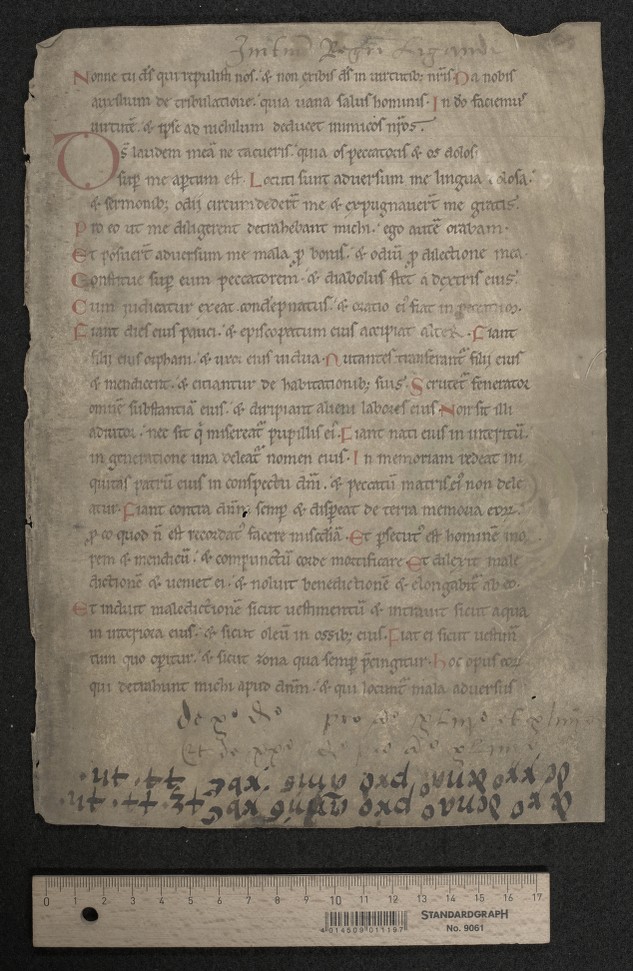 Nonne tu ds̄ qui repulisti nos. & non exibis ds̄ in uirtutib; nr̄is Da nobis
auxilium de tribulatione. quia uana salus hominis. In do faciemus
uirtutē. & ipse ad nichilum deducet inimicos nr̄os.
Ds̄ laudem meā ne tacueris. quia os peccatoris & os dolosi
sup̄ me aptum est. Locuti sunt aduersum me lingua dolosa.
& sermonib; odii circumdeder̄t me & expugnauer̄t me gratis.
Pro eo ut me diligerent detrahebant michi. ego autē orabam.
Et posuer̄t aduersum me mala ꝓ bonis. & odiū ꝓ dilectione mea
Constitue sup̄ eum peccatorem. & diabolus stet a dextris eius.
Cum iudicatur exeat condēpnatus. & oratio ei᾽ fiat in peccatum.
Fiant dies eius pauci. & episcopatum eius accipiat alter. Fiant
filij eius orphani. & uxor eius uidua. Nutantes transferant᾽ filij eius
& mendicent. & eiciantur de habitationib; suis. Scrutet᾽ fenerator
omnē substantiā eius. & diripiant alieni labores eius Non sit illi
adiutor. nec sit q̇ misereat᾽ pupillis ei᾽. Fiant nati eius in interitū.
in generatione una deleat᾽ nomen eius. In memoriam redeat ini
quitas patrū eius in conspectu dn̄i. & peccatū matris ei᾽ non dele
atur. Fiant contra dn̄m semp̄ & dispeat de terra memoria eor̄.
ꝓ eo quod n̄ est recordat᾽ facere mis̄cdiā. Et ꝑsecut᾽ est hominē ino
pem & mendicū. & compunctū corde mortificare. Et dilexit male
dictionē & ueniet ei. & noluit benedictionē & elongabit᾽ ab eo.
Et induit maledictionē sicut uestimentū & intrauit sicut aqua
in interiora eius. & sicut oleū in ossib; eius. Fiat ei sicut uestim̄
tum quo opitur. & sicut zona qua semp̄ p̄cingitur. Hoc opus eor̄
qui detrahunt michi apud dn̄m. & qui locunt᾽ mala aduersus
0 1 2 3 4 5 6 7 8 9 10 11 12 13 14 15 16 17
4 014509 011197
STANDARDGRAPH
No. 9061